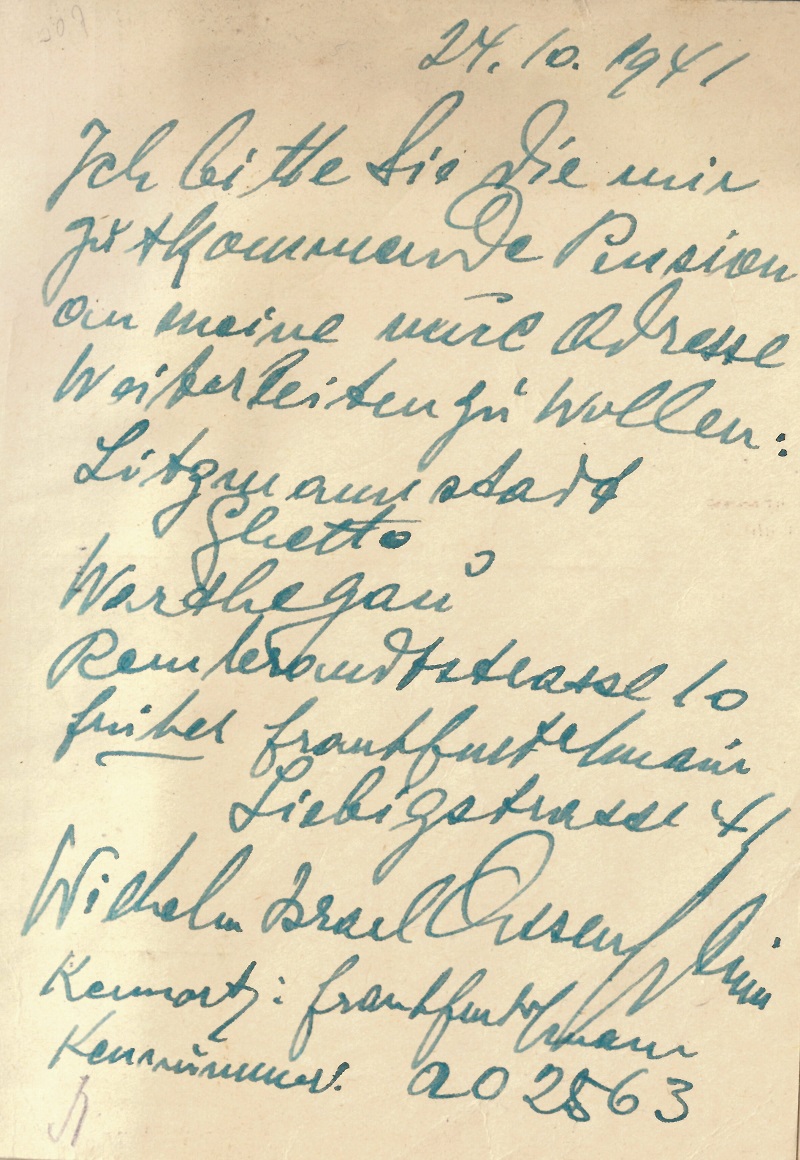 24. 10. 1941
Ich bitte Sie die mir
zutkommende Pension
an meine neue Adresse
Weiterleiten zu Wollen:
Litzmannstadt
Ghetto
Warthegau
Rembrandtstrasse 10
früher Frankfurt/main
Liebigstrasse 41
Wilhelm Israel
Kennort: Frankfurt/main
Kennummer: A02563